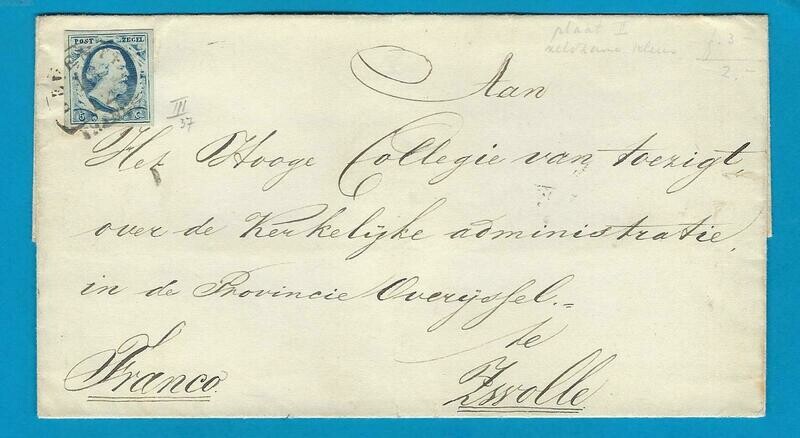 POST ZEGEL
5 C
plaat II
zeldzame kleur
3.-
2.-
III
37
Aan
Het Hooge Collegie van toezigt
over de Kerkelijke administratie,
in de Provincie Overijssel.=
te
Franco
Zwolle